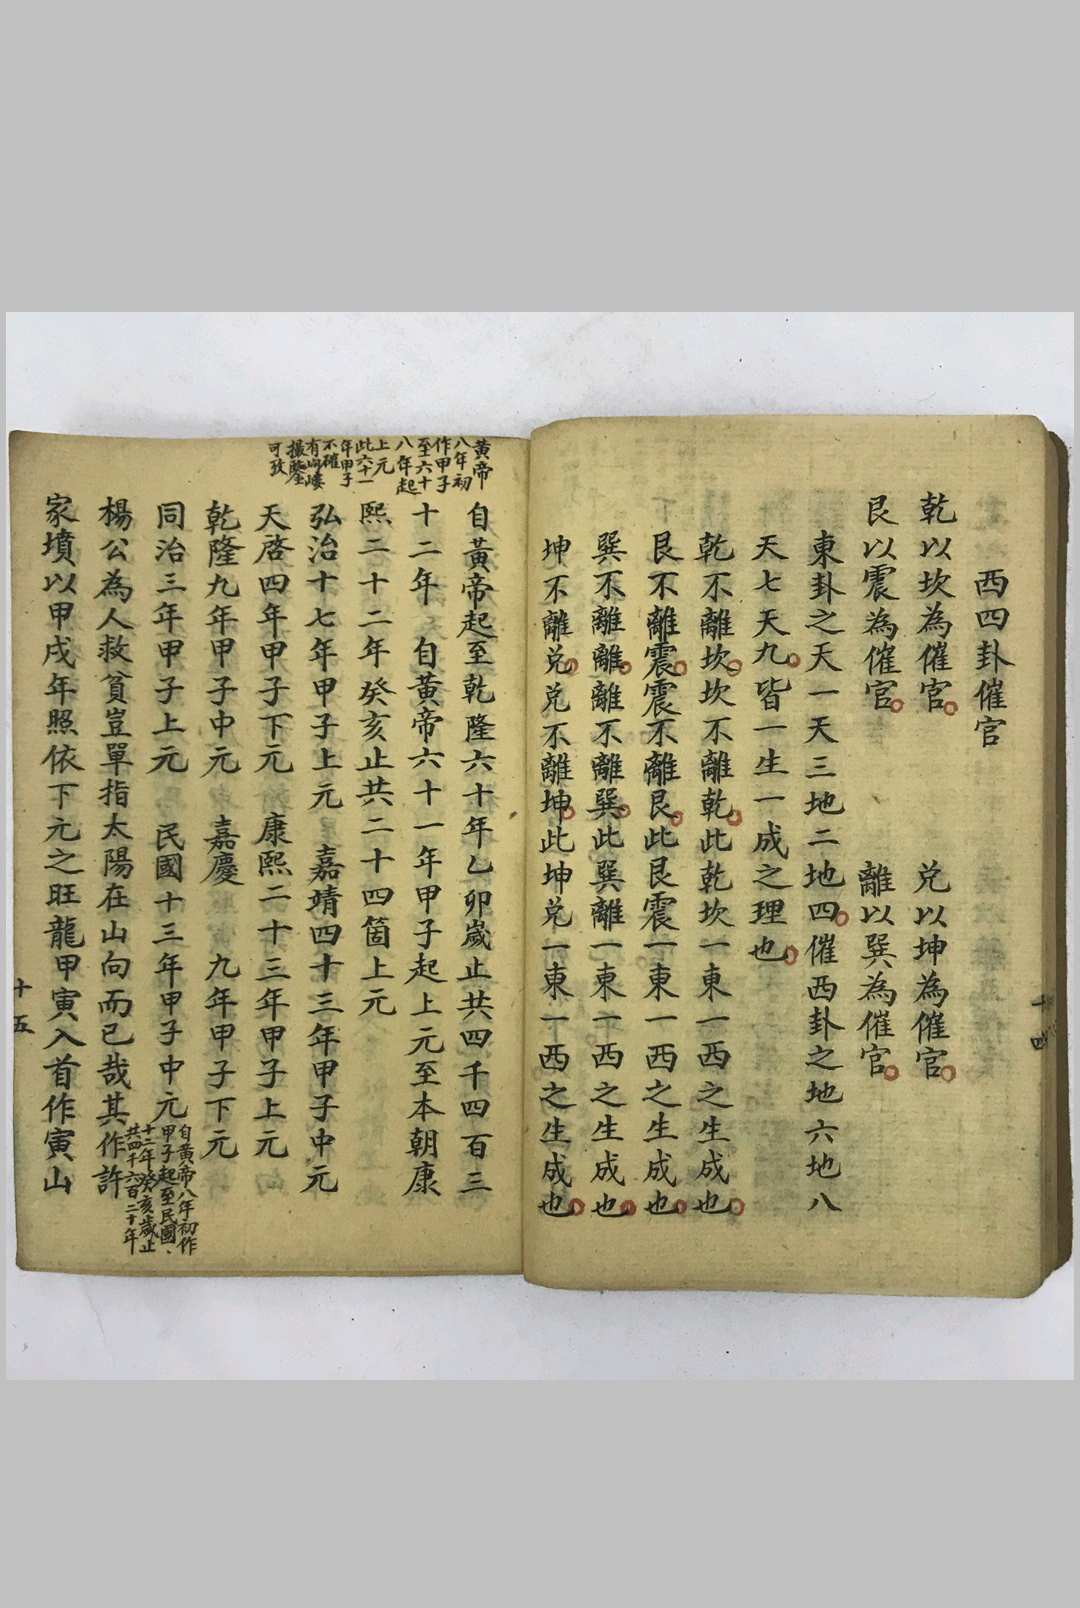 西四卦催官
乾以坎為催官 兌以坤為催官
艮以震為催官 離以巽為催官
東卦之天一天三地二地四催西卦之地六地八
天七天九皆一生一成之理也
乾不離坎坎不離乾此乾坎一東一西之生成也
艮不離震震不離艮此艮震一東一西之生成也
巽不離離離不離巽此巽離一東一西之生成也
坤不離兌兌不離坤此坤兌一東一西之生成也
十四
黃帝
八年初
作甲子
至六十
八年起
上元
此六十一
年甲子
不確
有岣嶁
撮
可攷
自黃帝起至乾隆六十年乙卯歲止共四千四百三
十二年 自黃帝六十一年甲子起上元至本朝康
熙二十二年癸亥止共二十四箇上元
弘治十七年甲子上元 嘉靖四十三年甲子中元
天啓四年甲子下元 康熙二十三年甲子上元
乾隆九年甲子中元 嘉慶九年甲子下元
同治三年甲子上元 民國十三年甲子中元
自黃帝八年初作
甲子起至民國、
十二年癸亥歲止
共四千六百二十年
楊公為人救貧豈單指太陽在山向而已哉其作許
家墳以甲戌年照依下元之旺龍甲寅入首作寅山
十五